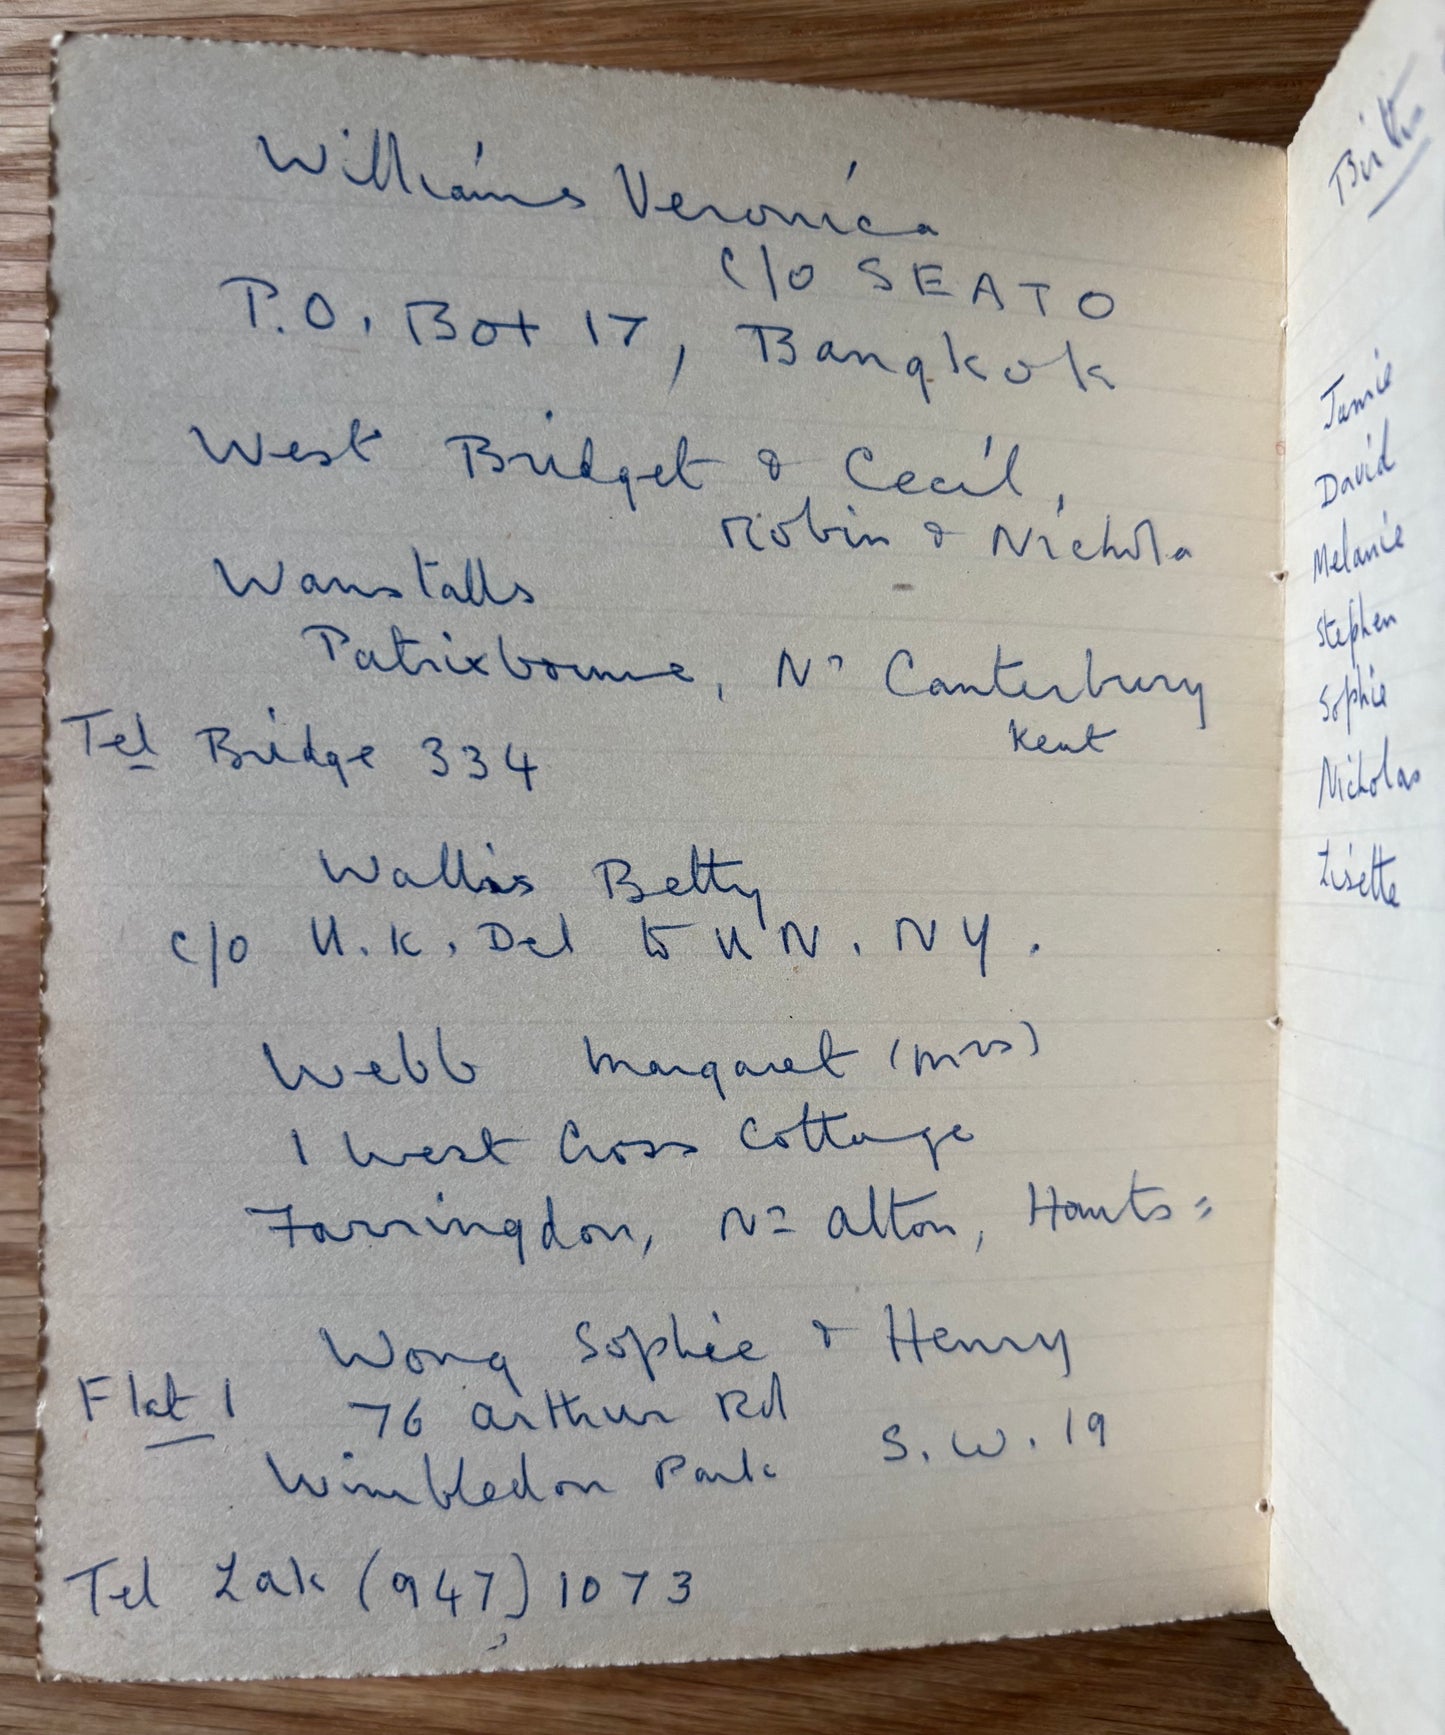 Williams Veronica
c/o SEATO
P.O. Box 17, Bangkok
West Bridget & Cecil,
Robin & Nichola
Wanstalls
Patrixbourne, Nr Canterbury
Kent
Tel Bridge 334
Wallis Betty
c/o U.K. Del to UN. NY.
Webb Margaret (Mrs)
1 West Cross Cottage
Farringdon, Nr Alton, Hants=
Wong Sophie & Henry
Flat 1 76 Arthur Rd
Wimbledon Park S.W.19
Tel Lak (947) 1073
Jamie
David
Melanie
Stephen
Sophie
Nicholas
Lisette